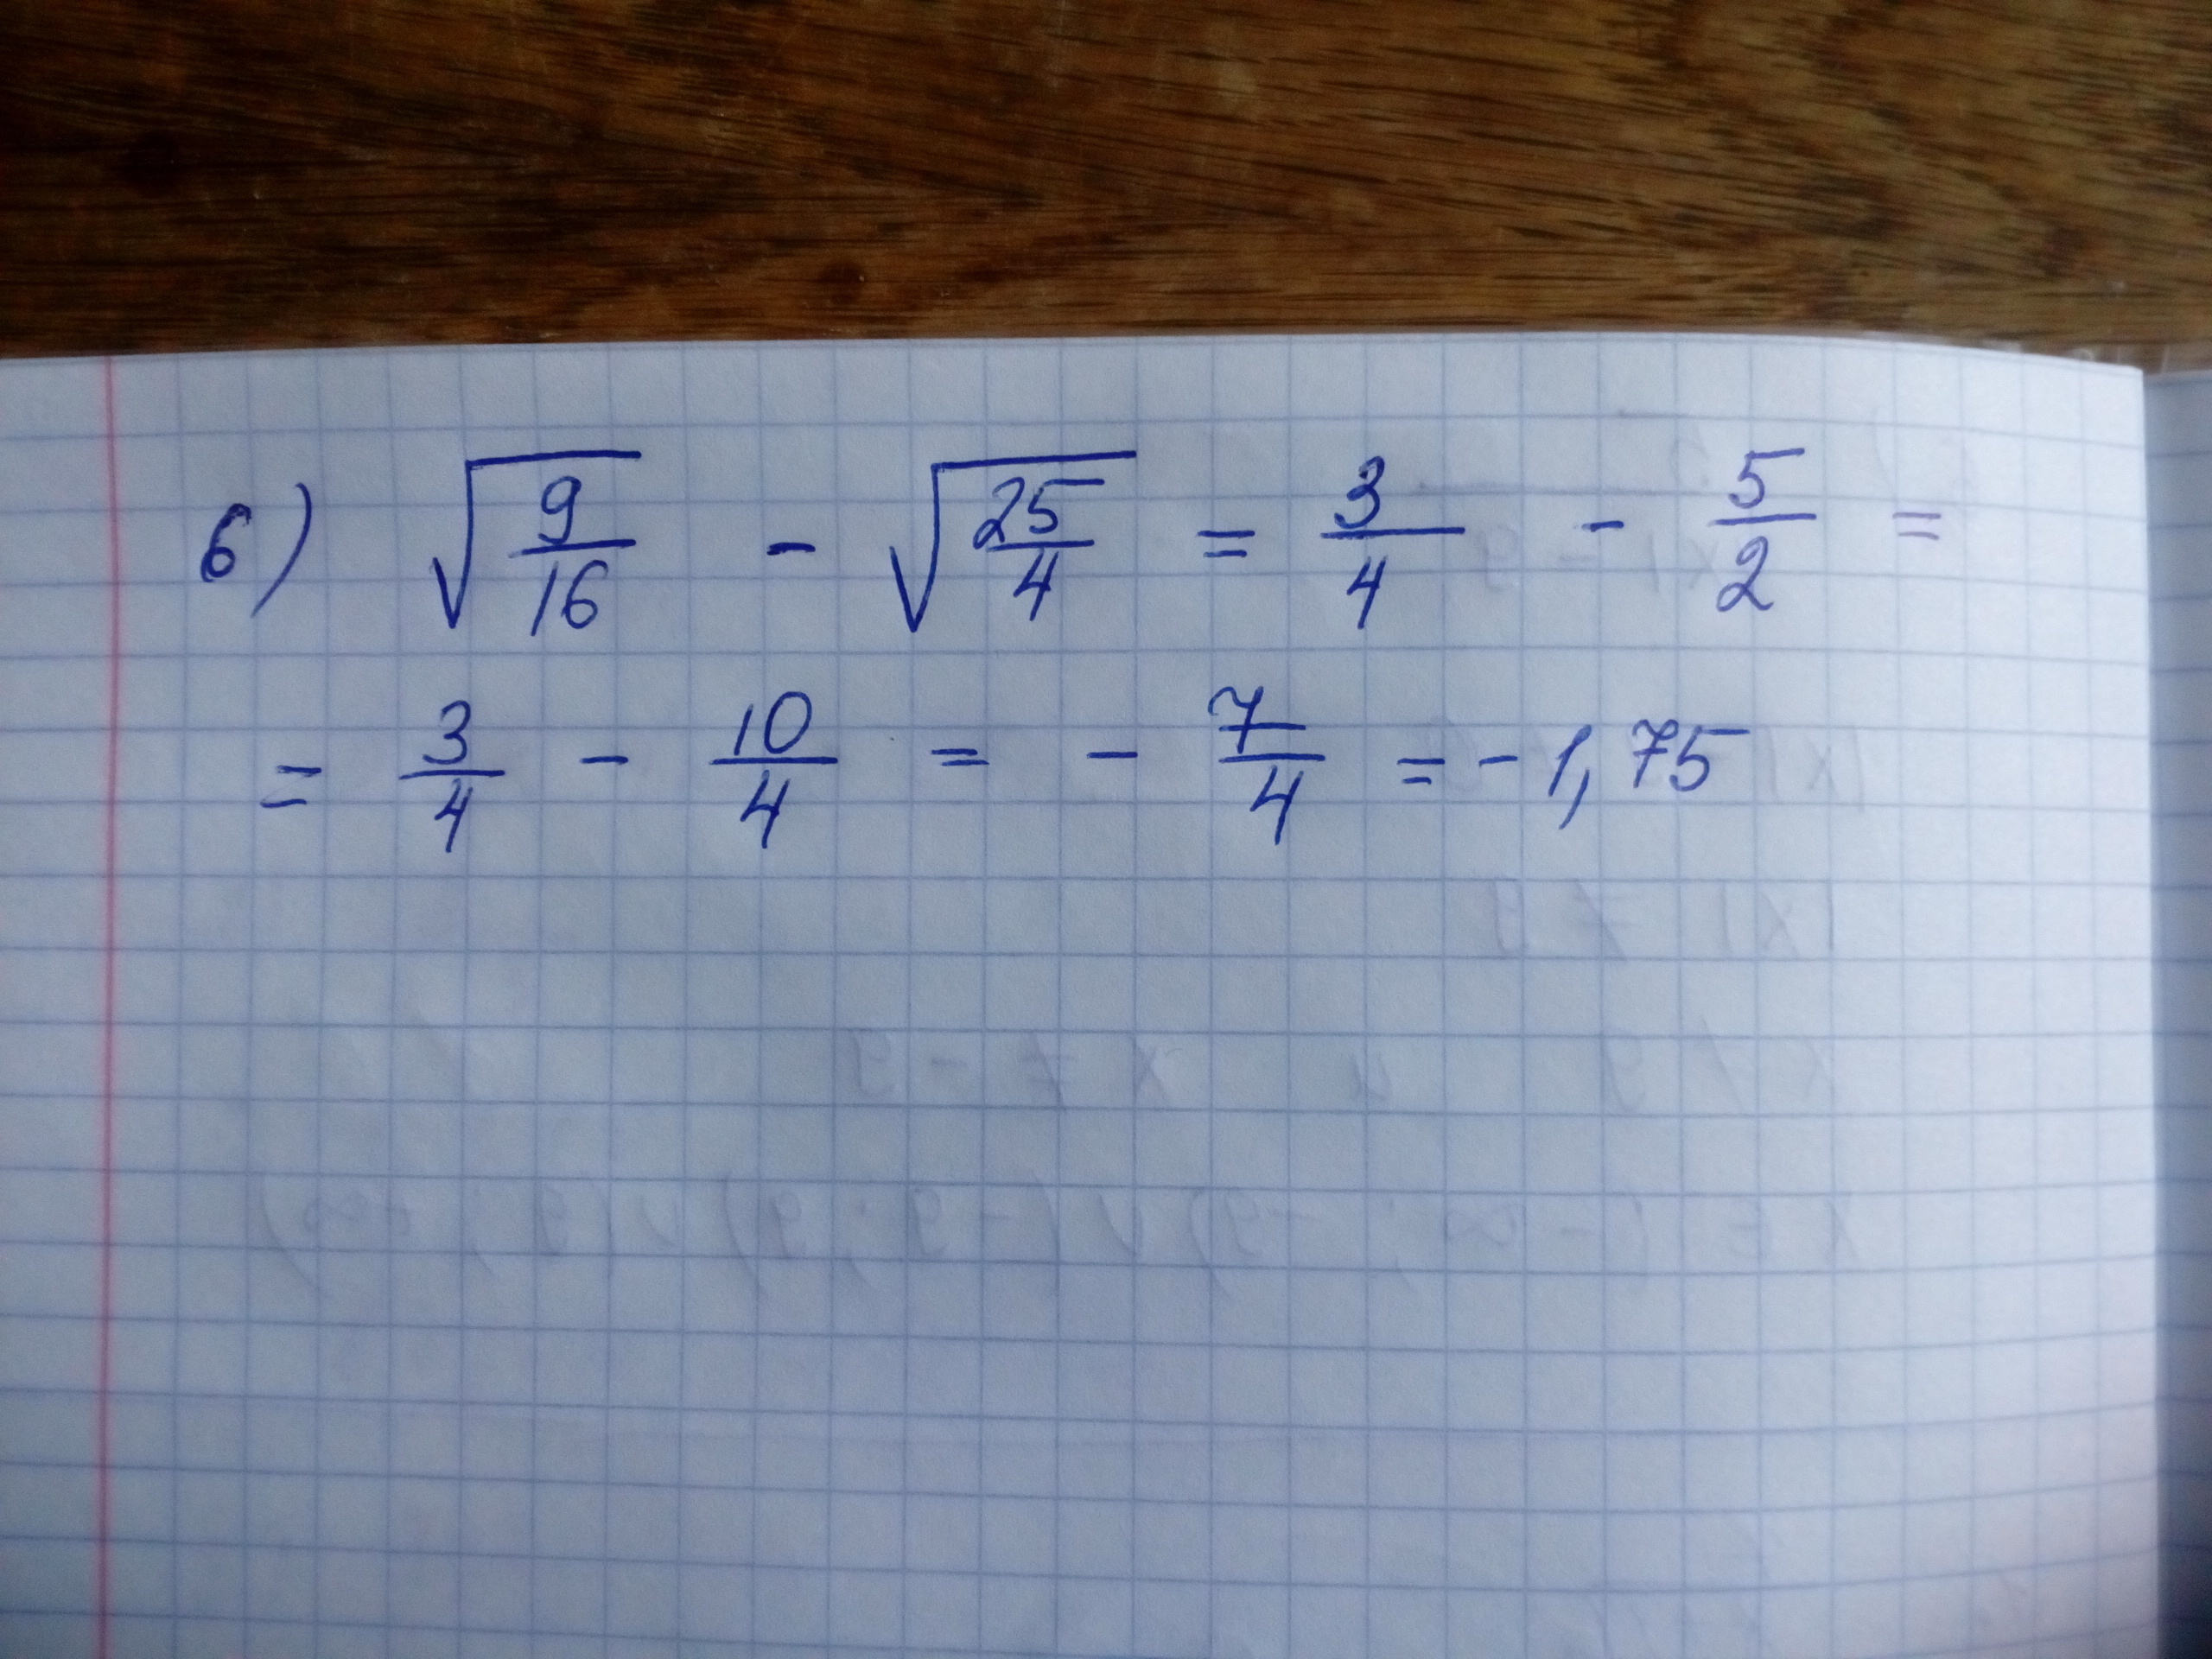 6) √(9/16) - √(25/4) = 3/4 - 5/2 =
= 3/4 - 10/4 = - 7/4 = - 1,75